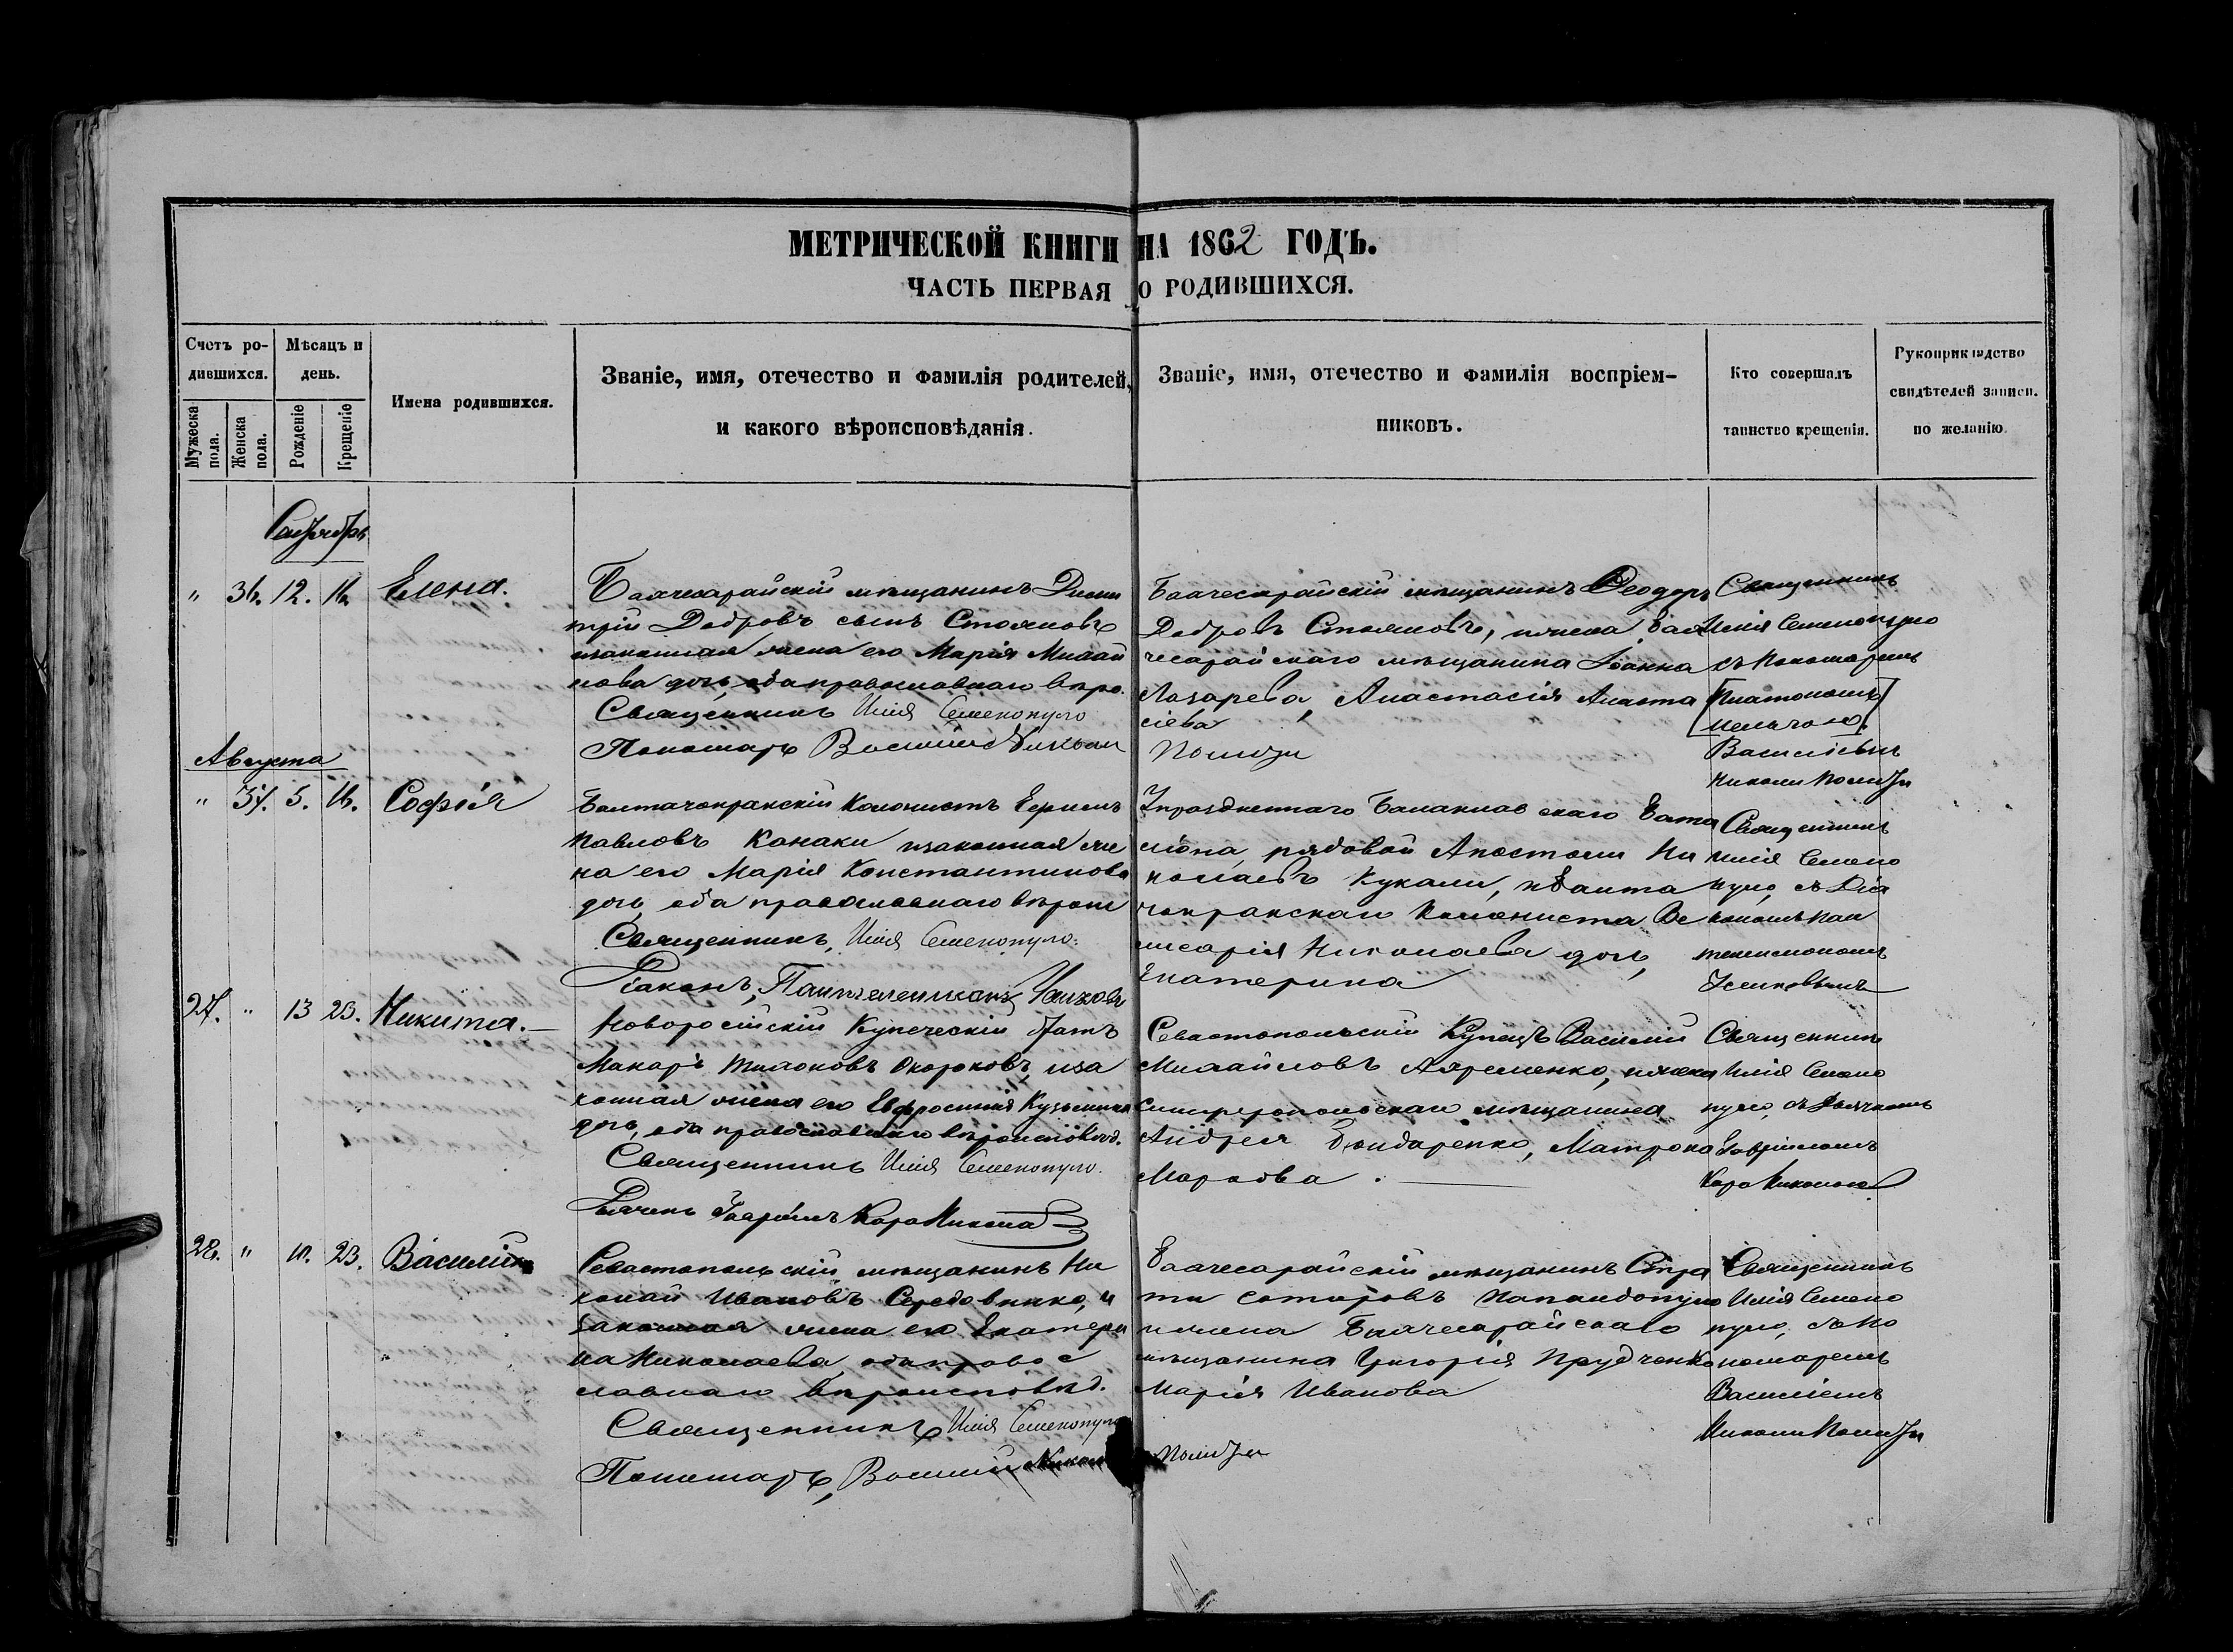 МЕТРИЧЕСКОЙ КНИГИ НА 1862 ГОДЪ.
ЧАСТЬ ПЕРВАЯ О РОДИВШИХСЯ.
Счетъ ро-
дившихся.
Мужеска
пола.
Женска
пола.
Мѣсяцъ и
день.
Рожденіе
Крещеніе
Имена родившихся.
Званіе, имя, отечество и фамилія родителей,
и какого вѣроисповѣданія.
Званіе, имя, отечество и фамилія воспріем-
никовъ.
Кто совершалъ
таинство крещенія.
Рукоприкладство
свидѣтелей записи.
по желанію
" 36. 12. Елена.
Бахчесарайскій мѣщанинъ Дими
трій Добровъ сынъ Стояновъ
изаконная жена его Марія Михай
лова дочь, оба православнаго вѣро.
Священникъ Илія Семенопуло
Пономарь Василій
Бахчесарайскій мѣщанинъ Ѳеодоръ
Добровъ Стояновъ, ижена Бах
чесарайскаго мѣщанина Іоанна
Лазарева, Анастасія Анаста
сіева
Полизи
Священникъ
Илія Семенопуло
съ Пономаремъ
Василіемъ
Николи Полизи
Августа
" 37. 5. Софія
Балтачокракскій Колонистъ
Павловъ Канаки изаконная же
на его Марія Константинова
дочь, оба православнаго вѣрои
Священникъ, Илія Семенопуло.
Діаконъ, Пантелеимонъ
Упраздненнаго Балаклавскаго Бата
ліона, рядовой Апостоли Ни
колаевъ Кукали,
чокракскаго Колониста Ве
лисарія Николаева дочь,
Екатерина
Священникъ
Илія Семено
пуло, съ Діа
кономъ Пан
телеимономъ
27. " 13 23. Никита.
Новоросійскій Купеческій братъ
Макаръ Окороковъ, иза
конная жена его Евфросинія Кузьмина
дочь, оба православнаго вѣроисповѣд.
Священникъ Илія Семенопуло.
Дьячекъ Гавріилъ КараНикола
Севастопольскій Купецъ Василій
Михайловъ ижена
Симферопольскаго мѣщанина
Андрея Бондаренко, Матрона
Маркова.
Священникъ
Илія Семено
пуло, съ Дьячкомъ
Гавріиломъ
Кара Николою
28. " 23. Василій
Севастопольскій мѣщанинъ Ни
колай Ивановъ и
законная жена его Екатери
на Николаева, оба правос
лавнаго вѣроисповѣд.
Священникъ Илія Семенопуло
Пономарь, Василій Николи Полизи
Бахчесарайскій мѣщанинъ Стра
ти Сотировъ Папандопуло
ижена Бахчесарайскаго
мѣщанина Григорія Прудченко
Марія Иванова
Священникъ
Илія Семено
пуло, съ По
номаремъ
Василіемъ
Николи Полизи